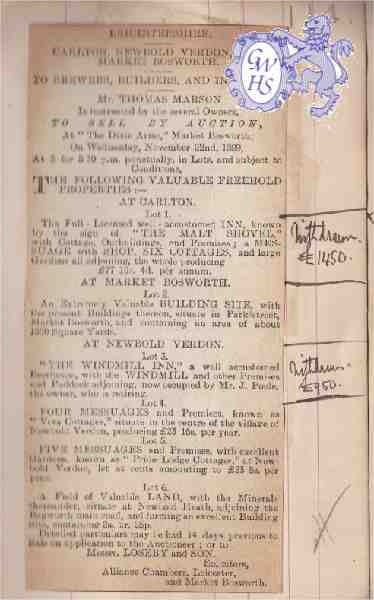 LEICESTERSHIRE.
CARLTON, NEWBOLD VERDON
MARKET BOSWORTH.
TO BREWERS, BUILDERS, AND IN
GWHS
Mr. THOMAS MARSON
Is instructed by the several Owners,
TO SELL BY AUCTION,
At "The Dixie Arms," Market Bosworth,
On Wednesday, November 22nd, 1899,
At 5 for 5 30 p.m. punctually, in Lots, and subject to
Conditions,
THE FOLLOWING VALUABLE FREEHOLD
PROPERTIES:—
AT CARLTON.
Lot 1.
The Full-Licensed well-accustomed INN, known
by the sign of "THE MALT SHOVEL,"
with Cottage, Outbuildings, and Premises; a MES-
SUAGE with SHOP, SIX COTTAGES, and large
Gardens all adjoining, the whole producing
£77 10s. 4d. per annum.
Withdrawn
£1450.
AT MARKET BOSWORTH.
Lot 2.
An Extremely Valuable BUILDING SITE, with
the present Buildings thereon, situate in Park-street,
Market Bosworth, and containing an area of about
Square Yards.
AT NEWBOLD VERDON.
Lot 3.
"THE WINDMILL INN," a well accustomed
Beerhouse, with the WINDMILL and other Premises
and Paddock adjoining, now occupied by Mr. J.
the owner, who is retiring.
Withdrawn
£950.
Lot 4.
FOUR MESSUAGES and Premises, known as
"Vera Cottages," situate in the centre of the village of
Newbold Verdon, producing £23 16s. per year.
Lot 5.
FIVE MESSUAGES and Premises, with excellent
Gardens, known as Lodge Cottages," at New-
bold Verdon, let at rents amounting to £23 8s. per
year.
Lot 6.
A Field of Valuable LAND, with the Minerals
thereunder, situate at Newbold Heath, adjoining the
Bagworth main road, and forming an excellent Building
Site, containing 2a. 1r. 15p.
Detailed particulars may be had 14 days previous to
Sale on application to the Auctioneer; or to
Messrs. LOSEBY and SON,
Solicitors,
Alliance Chambers, Leicester,
and Market Bosworth.